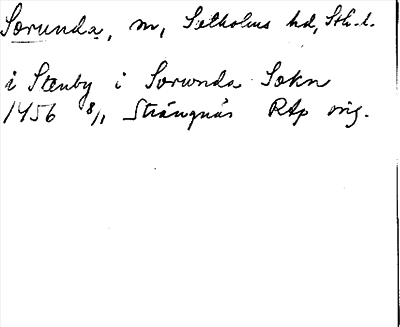 Sorunda, m, Sotholms hd, Sth.l.
i Stenby i Sorunda Sokn
1456 8/1 Strängnäs RAp orig.